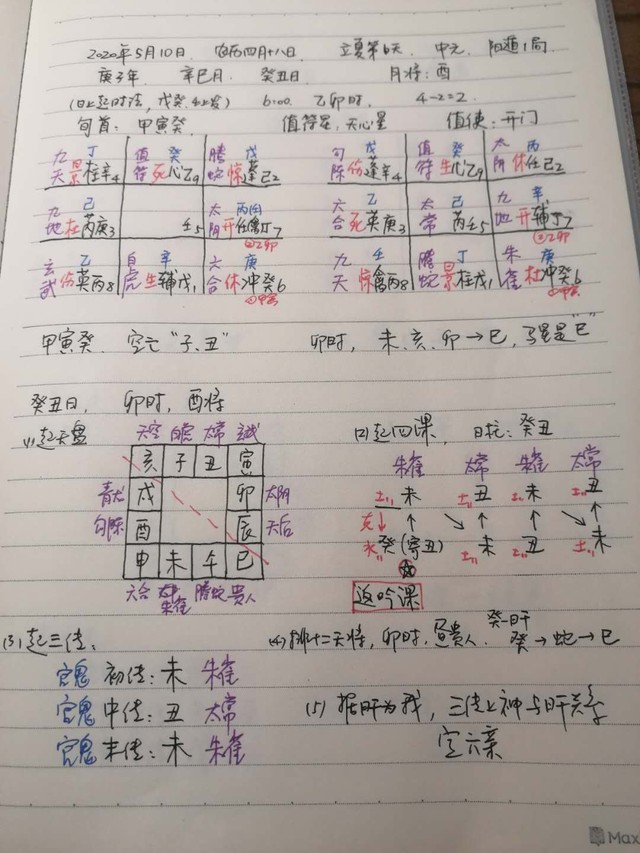 2020年5月10日 农历四月十八日 立夏第6天 中元 阳遁1局
庚子年 辛巳月 癸丑日 月将:酉
(日上起时法,戊癸 6:00 乙卯时 4-2=2
旬首:甲寅癸 值符星:天心星 值使:开门
九 丁 值 癸 腾 戊 勾 戊 值 癸 太 丙
天景柱辛4 符死心乙9 蛇惊蓬己2 陈伤蓬辛4 符生心乙9 阴休任己2
九 己 太 丙 六 乙 太 己 九 辛
地杜芮庚3 壬5 阴开任禽丁7 合死英庚3 常芮壬5 地开辅丁7
玄 乙 白 辛 六 庚 九 壬 腾 丁 朱 庚
武伤英丙8 虎生辅戊1 合休冲癸6 天惊禽丙8 蛇景柱戊1 雀杜冲癸6
甲寅癸 空亡"子、丑" 卯时,未、亥、卯→巳,马星是"巳"
癸丑日, 卯时,酉将
(1)起天盘 天空 白虎 太常 玄武 (2)起四课, 日柱:癸丑
亥 子 丑 寅 朱雀 太常 朱雀 太常
青龙 戌 卯 太阴 土 未 土 丑 土 未 土 丑
勾陈 酉 辰 天后 克 ↑ ↘ ↑ ↑ ↘ ↑
申 未 午 巳 水 癸(寄丑) 土 未 土 丑 土 未
六合 朱雀 腾蛇 贵人 返吟课
(3)起三传: (4)排十二天将,卯时,昼贵人. 癸-日干
官鬼 初传:未 朱雀 癸→蛇→巳
官鬼 中传:丑 太常 (5)据日干为我,三传上神与日干关系
官鬼 末传:未 朱雀 定六亲
Max